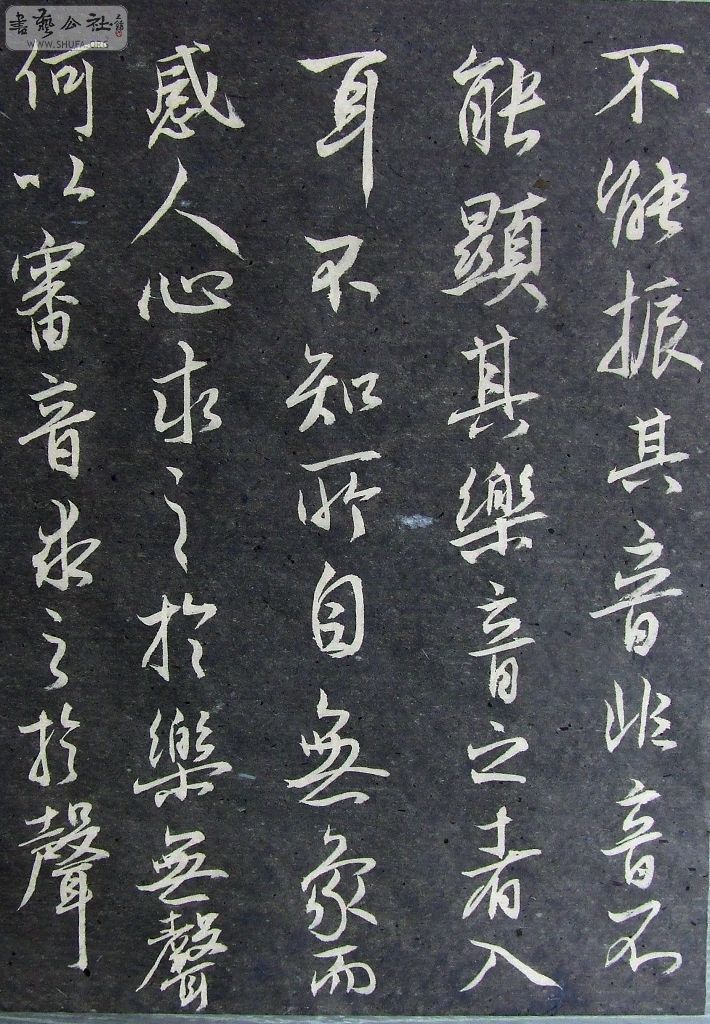 不能振其音非音不
能顯其樂音之者入
耳不知所自無象而
感人心求之於樂無聲
何以審音求之於聲
書藝公社
WWW.SHUFA.ORG